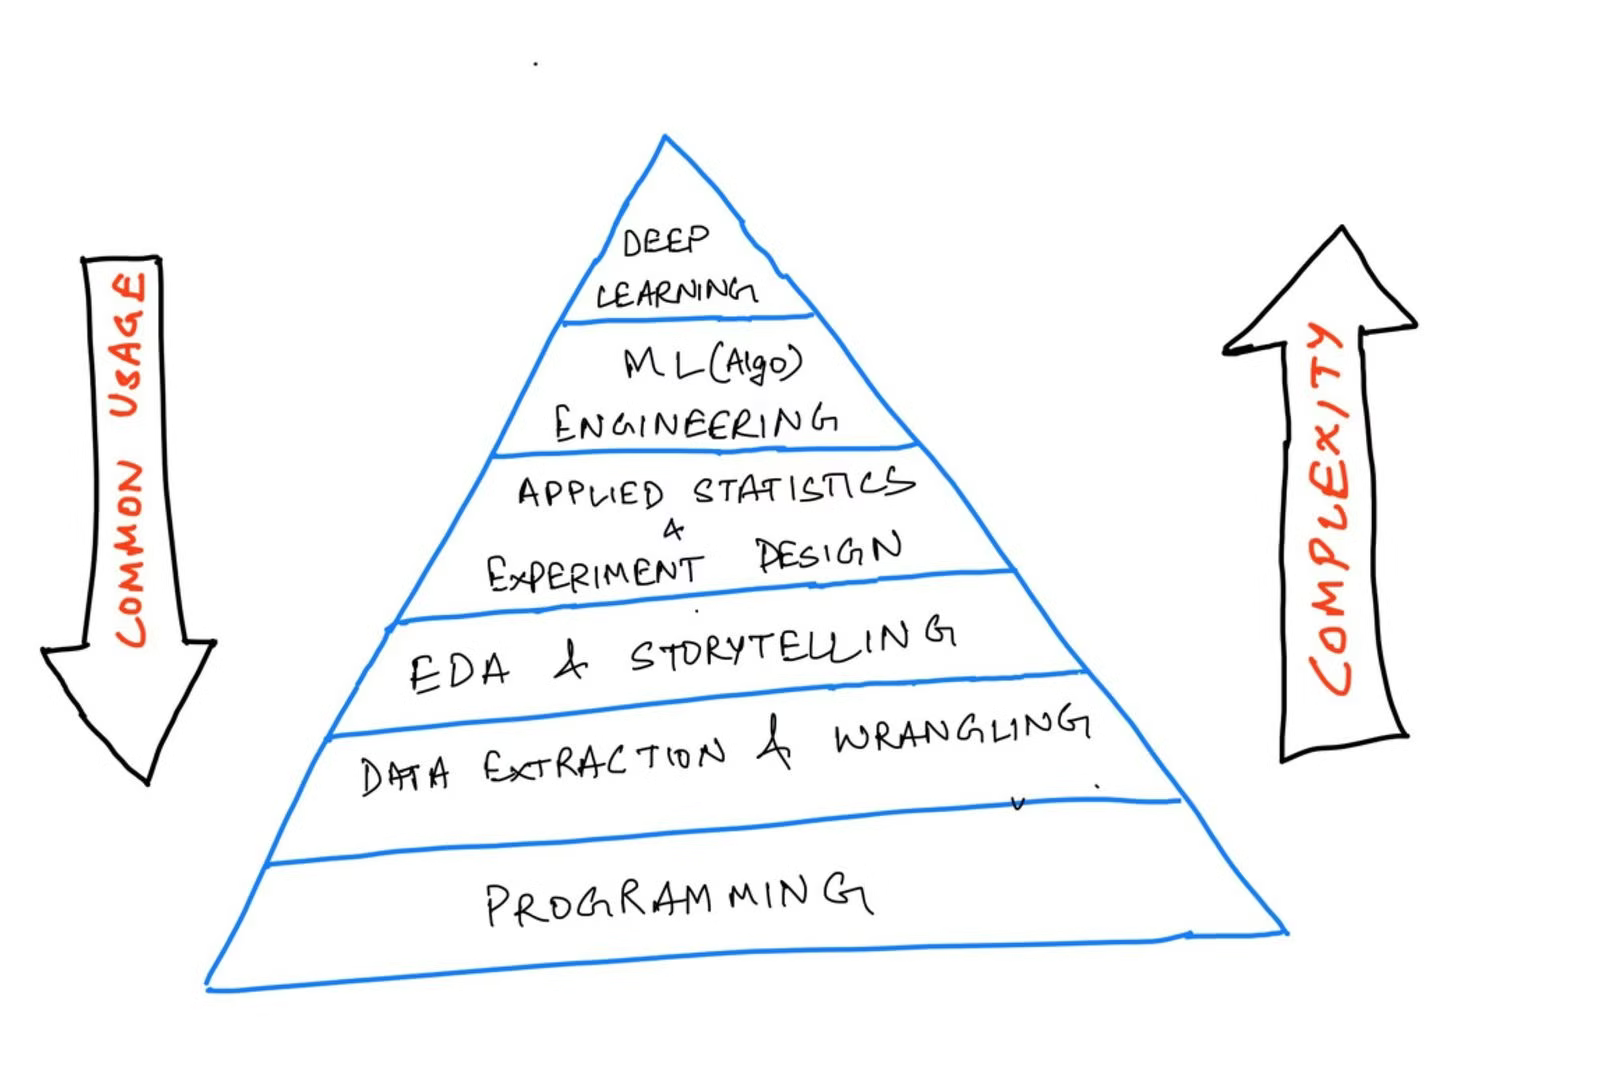 DEEP
LEARNING
ML(Algo)
ENGINEERING
APPLIED STATISTICS
&
EXPERIMENT DESIGN
EDA & STORYTELLING
DATA EXTRACTION & WRANGLING
PROGRAMMING
COMMON USAGE
COMPLEXITY